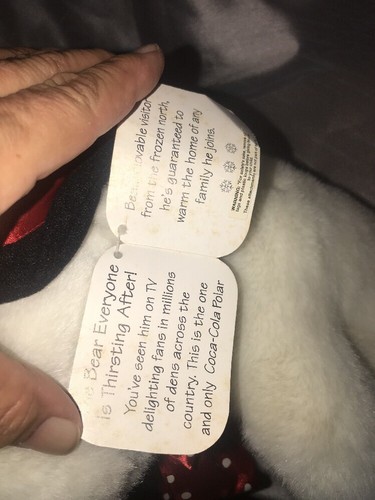 Bear Everyone
is Thirsting After!
You've seen him on TV
delighting fans in millions
of dens across the
country. This is the one
and only Coca-Cola Polar
lovable visitor
from the frozen north,
he's guaranteed to
warm the home of any
family he joins.
WARNING: